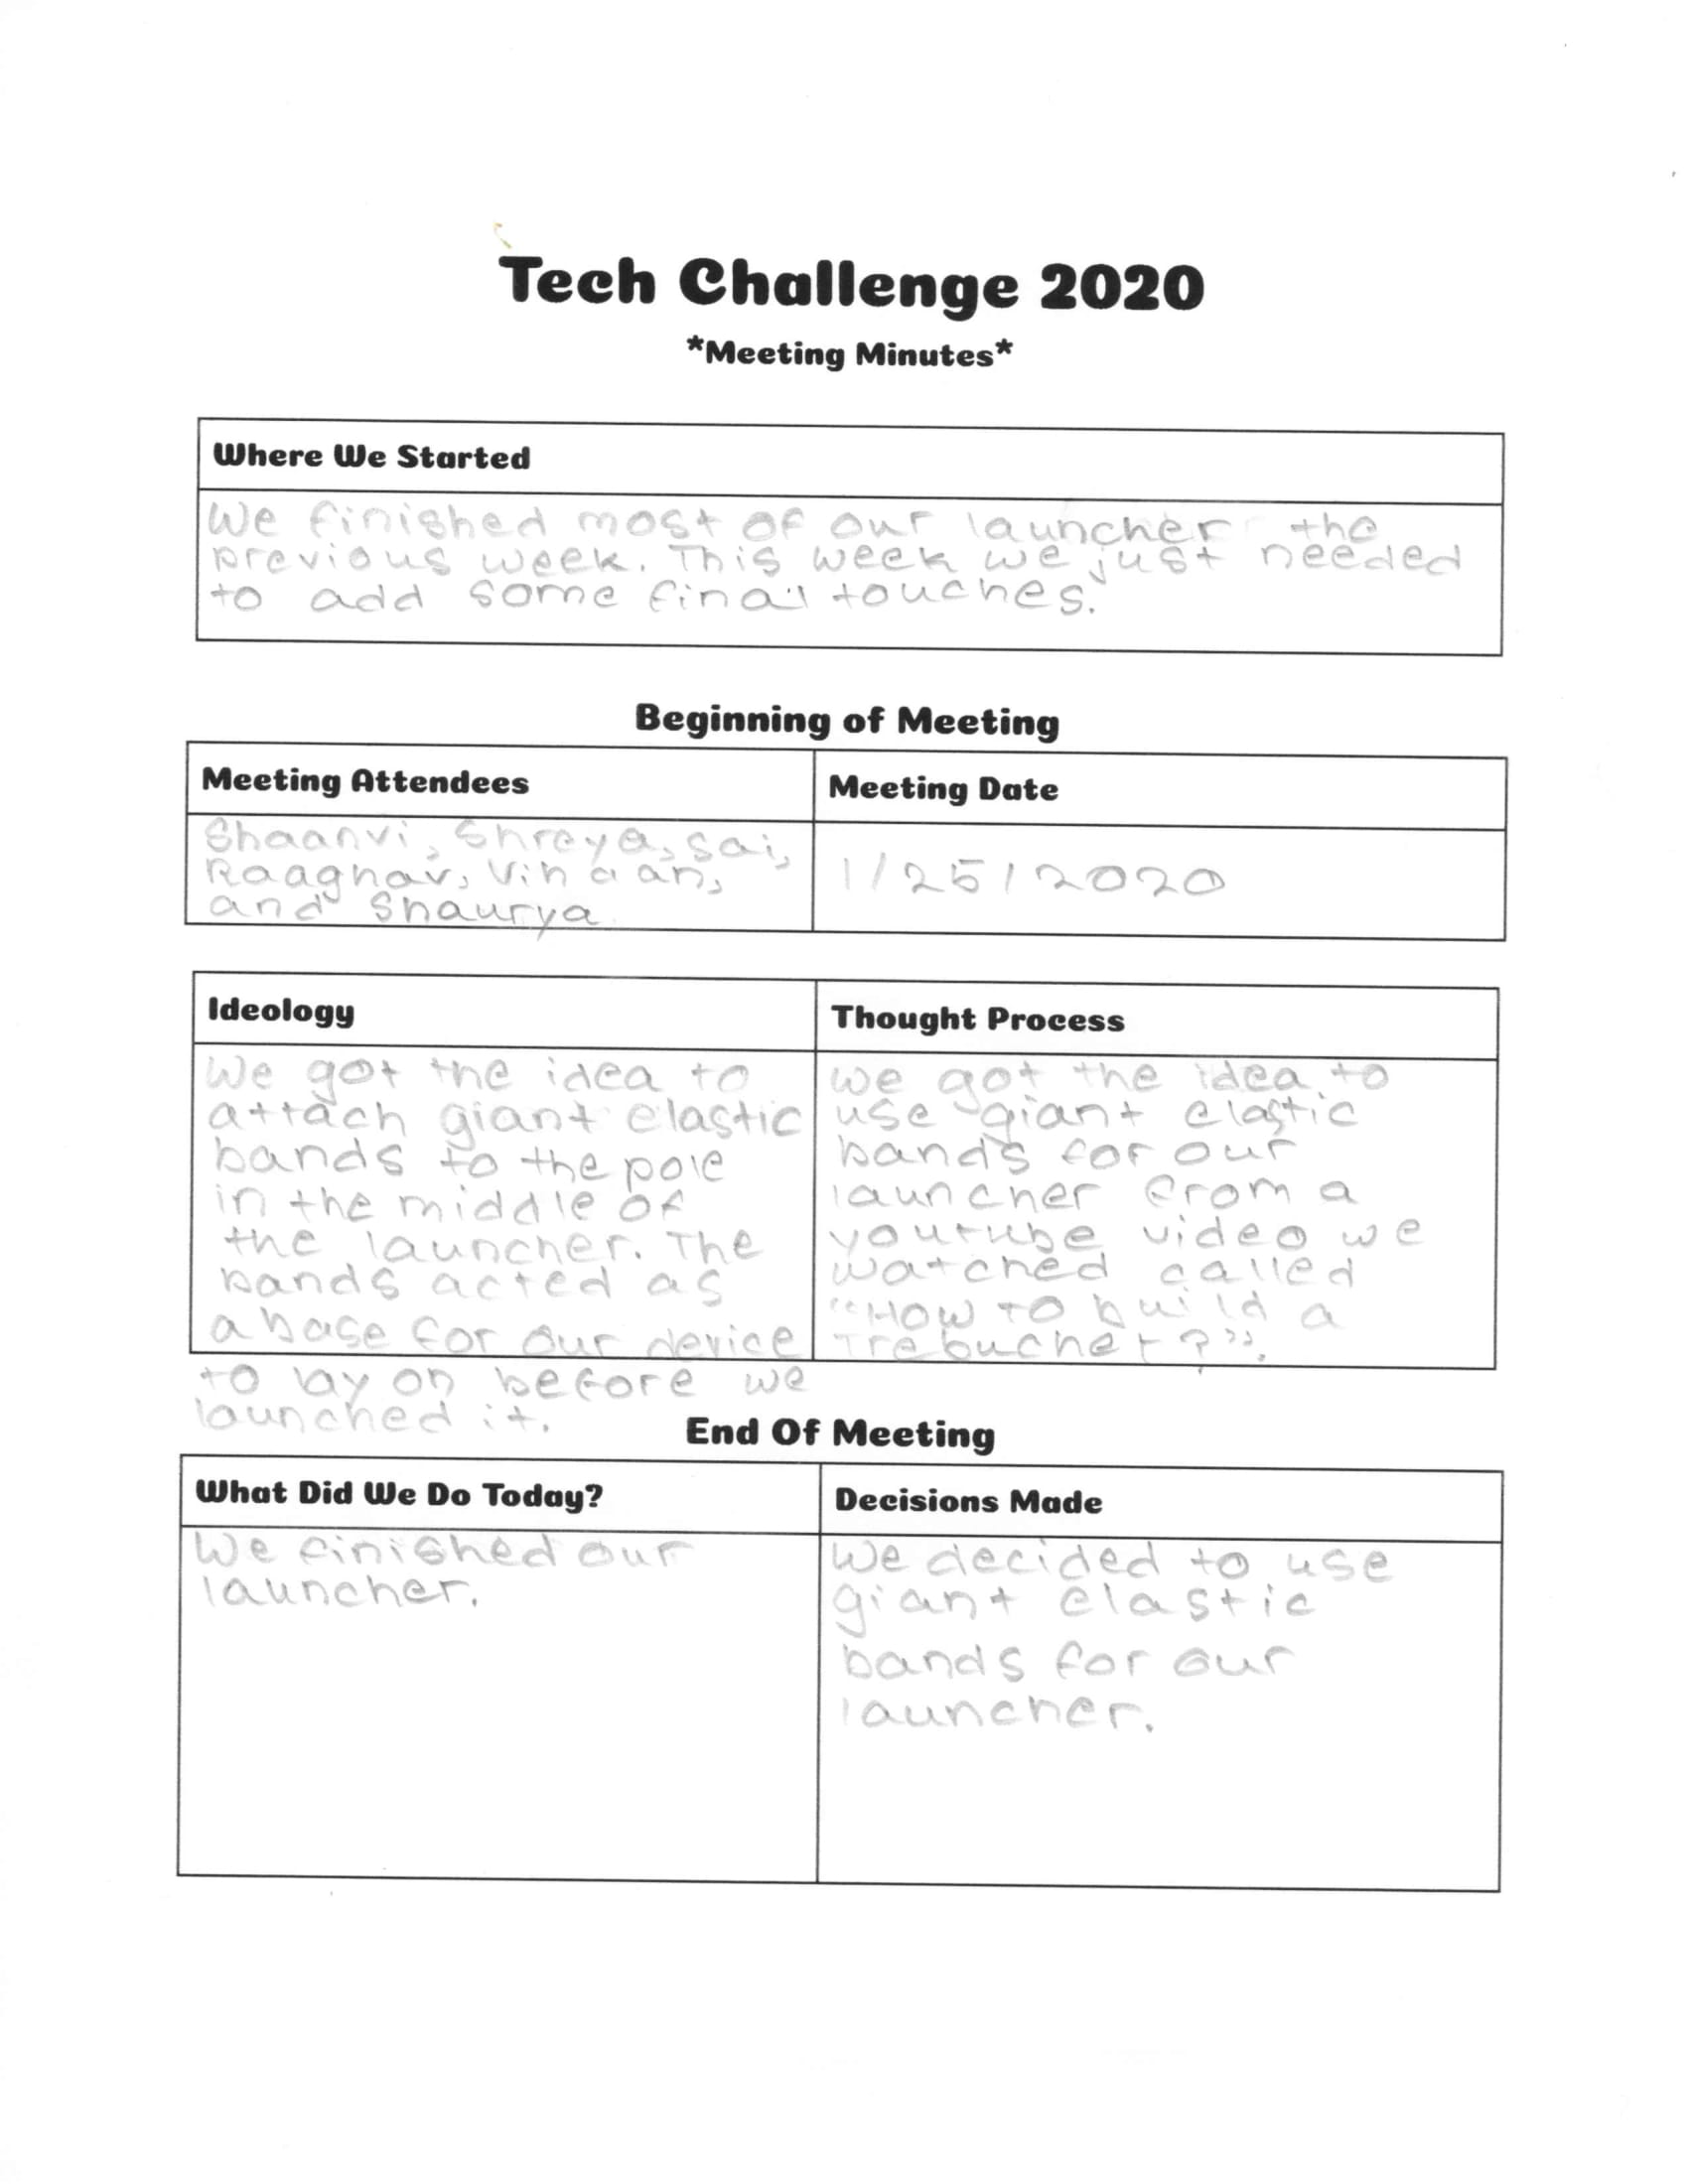 Tech Challenge 2020
*Meeting Minutes*
Where We Started
We finished most of our launcher the
previous week. This week we just needed
to add some final touches.
Beginning of Meeting
Meeting Attendees
Shaanvi, Shreya, Sai,
Raaghav, Vihaan,
and Shaurya
Meeting Date
1/25/2020
Ideology
We got the idea to
attach giant elastic
bands to the pole
in the middle of
the launcher. The
bands acted as
a base for our device
to lay on before we
launched it.
Thought Process
We got the idea to
use giant elastic
bands for our
launcher from a
youtube video we
watched called
"How To build a
Trebuchet?".
End Of Meeting
What Did We Do Today?
We finished our
launcher.
Decisions Made
We decided to use
giant elastic
bands for our
launcher.